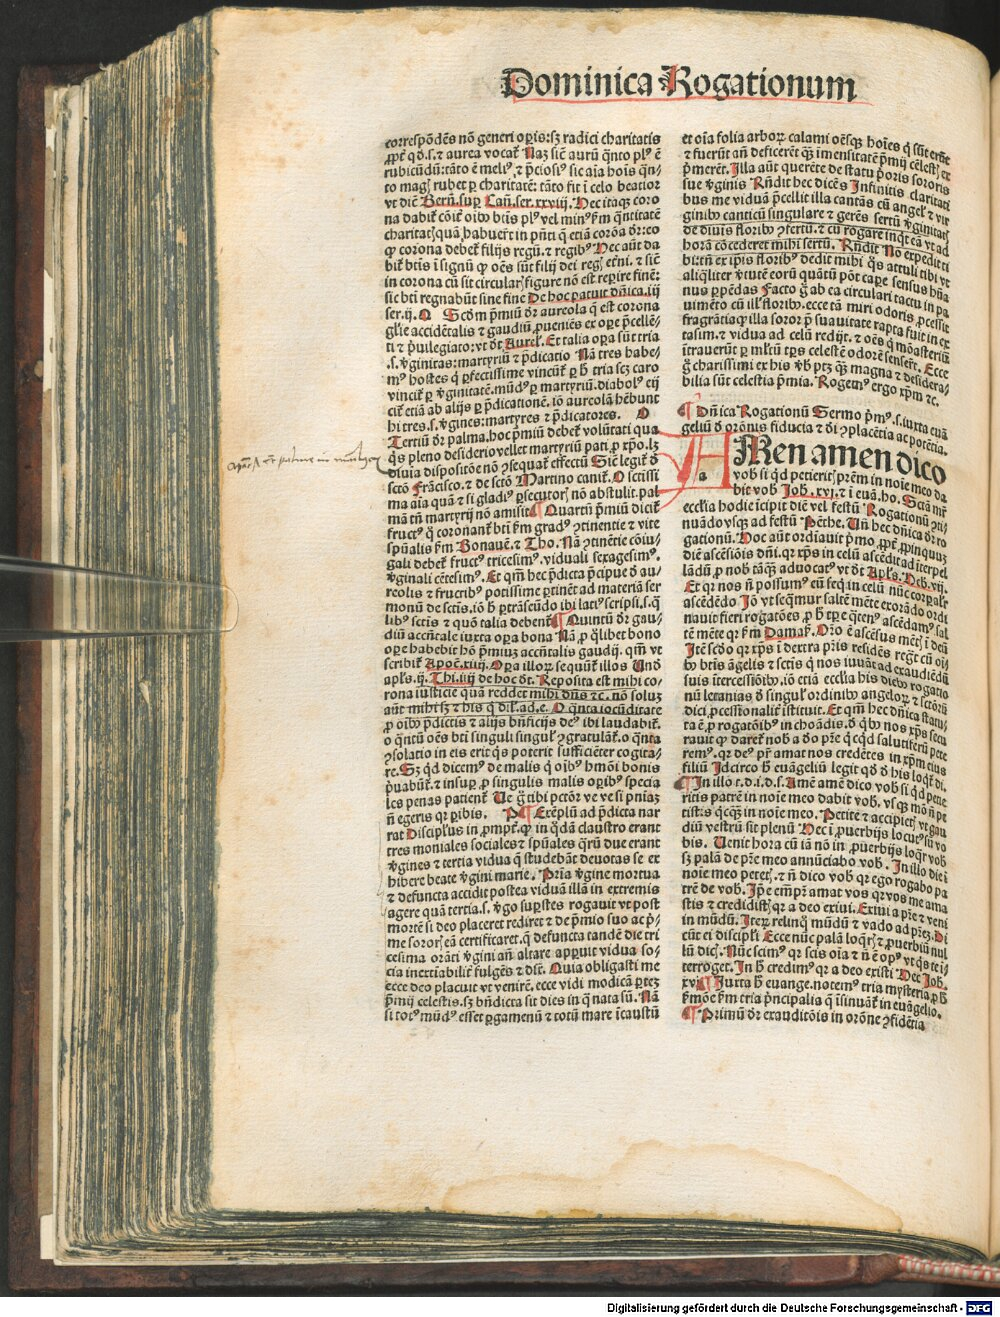 Dominica Rogationum
correspōdēs nō generi opis: sꝫ radici charitatis
rubicūdū: tāto ē meliꝰ, ⁊ p̄ciosiꝰ sic aīa hoīs q̄n-
to magꝭ rubet ꝑ charitatē: tāto fit ī celo beatior
vt diē Bern̄. suꝑ Can̄. ser. xxviij. Hec itaqꝫ coro
na dabit̄ cōit̓ oībꝰ btīs plꝰ vel minꝰ ẜm q̄ntitatē
charitatꝭ quā habuer̄t in pn̄ti
in corona cū sit circularꝭ figure nō est reperire finē:
sic bti regnabūt sine fine De hoc patuit dn̄ica. iij
ser. ij. O Scd̄m p̄miū dr̄ aureola q̄ est corona
gl̄ie accidētalis ⁊ gaudiū ꝓueniēs ex oꝑe p̄cellē-
ti ⁊ p̄uilegiato: vt dt̄ Aurel̄. Et talia oꝑa sūt tria
.s. ꝟginitas: martyriū ⁊ p̄dicatio Nā tres habe-
mꝰ hostes q̄ ꝑfectissime vincūt̄ ꝑ h̄ tria scꝫ caro
vincit̄ ꝑ ꝟginitatē. mūdꝰ ꝑ martyriū. diabolꝰ eij
cit̄ etiā ab alijs ꝑ p̄dicationē. iō aureolā hēbunt
hi tres .s. ꝟgines: martyres ⁊ p̄dicatores. O
Tertiū dr̄ palma. hoc p̄miū debet̄ volūtati qua
q̄s pleno desiderio vellet martyriū pati ꝓ xp̄o. lꝫ
diuia dispositōe nō ꝯsequat̄ effectū Sic̄ legit̄ d̄
scto Frācisco. ⁊ de scto Martino canit̄. O sctissi
ma aīa quā ⁊ si gladiꝰ ꝑsecutorꝭ nō abstulit. pal
mā tn̄ martyrij nō amisit ¶ Quartū p̄miū dicit̄
fructꝰ q̄ coronant̄ bti ẜm gradꝰ ꝯtinentie ⁊ vite
spūalis ẜm Bonauē. ⁊ Tho. Nā ꝯtinētie cōiu-
gali debet̄ fructꝰ tricesimꝰ. viduali sexagesimꝰ.
ꝟginali cētesimꝰ. Et qm̄ hec p̄dicta p̄cipue d̄ au-
reolis ⁊ fructibꝰ potissime ꝑtinēt ad materiā ser
monū de sctis. iō h̄ ꝑtrāseūdo ibi latiꝰ scripsi. s. q̄
libꝰ sctis ⁊ quō talia debent̄ ¶ Quintū dr̄ gau-
diū accn̄tale iuxta oꝑa bona Nā ꝓ q̄libet bono
oꝑe habebit hō p̄miuꝫ accn̄talis gaudij. qm̄ vt
scribit̄ Apoc̄. xiiij. Oꝑa illoꝝ sequūt̄ illos Uñ
apl̄s. ij. Thi. iiij de hoc dt̄. Reposita est mihi co-
rona iusticie quā reddet mihi dn̄s ⁊c. nō soluꝫ
aūt mihi sꝫ ⁊ his q̄ dil̄. ad. e. O q̄nta iocūditate
ꝓ oībꝰ p̄dictis ⁊ alijs bn̄ficijs deꝰ ibi laudabit̄.
o q̄ntū oēs bti singuli singulꝭ ꝯgratulāt̄. o q̄nta
ꝯsolatio in eis erit q̄s poterit sufficiēter cogita-
re. Sꝫ qd̄ dicemꝰ de malis q̄ oībꝰ hm̄oi bonis
p̄uabūt̄. ⁊ insuꝑ ꝓ singulis malis oꝑibꝰ specia
les penas patient̄ Ue g̊ tibi pctōr ve ve si pn̄iaꝫ
n̄ egeris qr̄ ꝑibis. P ¶ Exēplū ad p̄dicta nar
rat Discipłus in ꝓmpt̄. ꝙ in q̄dā claustro erant
tres moniales sociales ⁊ spūales q̄rū due erant
ꝟgines ⁊ tertia vidua q̄ studebāt deuotas se ex
hibere beate ꝟgini marie. Pr̄ia ꝟgine mortua
⁊ defuncta accidit postea viduā illā in extremis
agere quā tertia. s. ꝟgo suꝑstes rogauit vt post
mortē si deo placeret rediret ⁊ de p̄mio suo ac p̄-
me sororꝭ eā certificaret. q̄ defuncta tandē die tri
cesima orāti ꝟgini an̄ altare apꝑuit vidua so-
cia inextīabilit̄ fulgēs ⁊ dt̄. Quia obligasti me
ecce deo placuit vt venirē. ecce vidi modicā ꝑteꝫ
p̄mij celestis. sꝫ bn̄dicta sit dies in q̄ nata sū. Nā
si totꝰ mūdꝰ esset ꝑgamenū ⁊ totū mare īcaustū
et oīa folia arboꝝ calami oēsqꝫ hoīes
⁊ fuerūt an̄ deficerēt qꝫ imensitatē p̄mij celestꝭ
p̄merēt̄. Illa aūt querēte de statu p̄oris sororis
sue ꝟginis Rn̄dit hec dicēs Infinitis claritati
bus me viduā p̄cellit illa cantās cū angelꝭ ⁊ vir
ginibꝰ canticū singulare ⁊ gerēs sertū ꝟginitatꝭ
de diuis floribꝰ ꝯfertū. ⁊ cū rogare inq̄t eā vt ad
horā cōcederet mihi sertū. Rn̄dit Nō expedit ti
bi: tn̄ ex ip̄is floribꝰ dedit mihi q̄s attuli tibi vt
aliq̄liter ꝟtutē eorū quātū pōt caꝑe sensus hūa
nus ꝑpēdas Facto g̊ ab ea circulari tactu in pa
uimēto cū ill̄ floribꝰ. ecce tā miri odoris ꝓcessit
fragrātia ꝙ illa soror p̄ suauitate rapta fuit in ex
tasim. ⁊ vidua ad celū redijt. ⁊ oēs q̄ monasteriū
ītrauerūt ꝑ ml̄tū tp̄s celestē odorē senser̄t. Ecce
g̊ charissimi ex his ꝟbꝭ ptꝫ q̄ꝫ magna ⁊ desidera-
bilia sūt celestia p̄mia. Rogemꝰ ergo xp̄m ⁊c.
¶ Dn̄ica Rogationū Sermo p̄mꝰ. s. iuxta euā
geliū d̄ orōnis fiducia ⁊ dī ꝯplacētia ac potētia.
AMen amen dico
a vob̄ si qd̄ petieritꝭ prēm in noīe meo da
bit vob̄ Joh. xvj. ⁊ ī euā. ho. Sctā mr̄
ecclia hodie īcipit diē vel festū Rogationū ꝯti-
nuādo vsqꝫ ad festū Pēthe. Uñ hec dn̄ica dr̄ ro
gationū. Hoc aūt ordiauit p̄mo ꝓpt̄ ꝓpinquuꝫ
diē ascēsiōis dn̄i. qr̄ xp̄s in celū ascēdit ad iterpel
lādū ꝓ nob̄ tāqꝫ aduocatꝰ vt dt̄ Apl̄s. Heb. vij.
Et qr̄ nos n̄ possumꝰ eū seq̄ in celū nūc corꝑalr̄
ascēdēdo Jō vt seq̄mur saltē mēte exorādo ordi
nauit fieri rogatōes
tē mēte qr̄ ẜm Damas̄. Or̄o ē ascēsus mētꝭ ī deū
Itē scd̄o qr̄ xp̄s ī dextra pr̄is residēs regt̄ cū oī
bꝰ btīs āgelis ⁊ sctis q̄ nos iuuāt ad exaudiēdū
suis ītercessiōibꝰ. iō etiā ecclīa his diebꝰ rogatio
nū letanias d̄ singulꝭ ordinibꝰ angeloꝝ ⁊ sctōrū
dici ꝓcessionalit̄ īstituit. Et qm̄ hec dn̄ica statu-
ta ē ꝓ rogatōibꝰ in choādis. d̄ q̄bꝰ nos xp̄s secu
rauit ꝙ daret̄ nob̄ a do pr̄e q̄ cqd̄ salutiferū pete
remꝰ. qr̄ deꝰ pr̄ amat nos credētes in xp̄m eius
filiū Idcirco h̄ euāgeliū legit̄ qd̄ d̄ his loqt̄ di.
¶ In illo t. d. i. d. s. Amē amē dico vob̄ si qd̄ petie
ritis patrē in noīe meo dabit vob̄. vsqꝫ mō n̄ pe
tistis q̄cqꝫ in noīe meo. Petite ⁊ accipietꝭ vt gau
diū vestrū sit plenū Hec ī ꝓuerbijs locutꝰ sū vo
bis. Uenit hora cū iā nō in ꝓuerbijs loqr̄ vob̄
sꝫ palā de pr̄e meo annūciabo vob̄. In illo die ī
noīe meo petetꝭ. ⁊ n̄ dico vob̄ qr̄ ego rogabo pa
trē de vob̄. Ip̄e em̄ pr̄ amat vos qr̄ vos me ama
stis ⁊ credidistꝭ qr̄ a deo exiui. Exiui a pr̄e ⁊ veni
in mūdū. Iteꝝ relinq̄ mūdū ⁊ vado ad pr̄eꝫ. Di
cūt ei discipl̄i Ecce nūc palā loq̄rꝭ ⁊ ꝓuerbiū nul
lū dicꝭ. Nūc scimꝰ qr̄ scis oīa ⁊ n̄ ē opꝰ vt q̄s te ī-
terroget. In h̄ credimꝰ qr̄ a deo existi Hec Joh.
xvj ¶ Juxta h̄ euange. notemꝰ tria mysteria ꝓ h̄
ẜmōe ẜm tria p̄ncipalia q̄ īsinuāt̄ in euāgelio.
¶ Primū dr̄ exauditōis in orōne ꝯfidētia
Digitalisierung gefördert durch die Deutsche Forschungsgemeinschaft - DFG